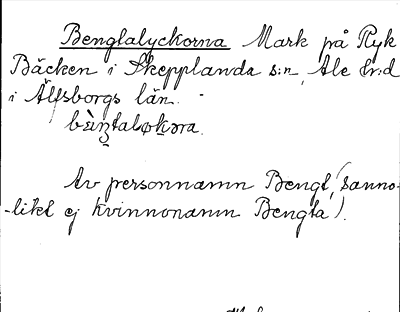 Benglalyckorna Mark på Ryk
Bäcken i Skepplanda s:n, Ale hr:d
i Älfsborgs län.
Av personnamn Bengt, (sanno-
-likt ej kvinnonamn Bengta).